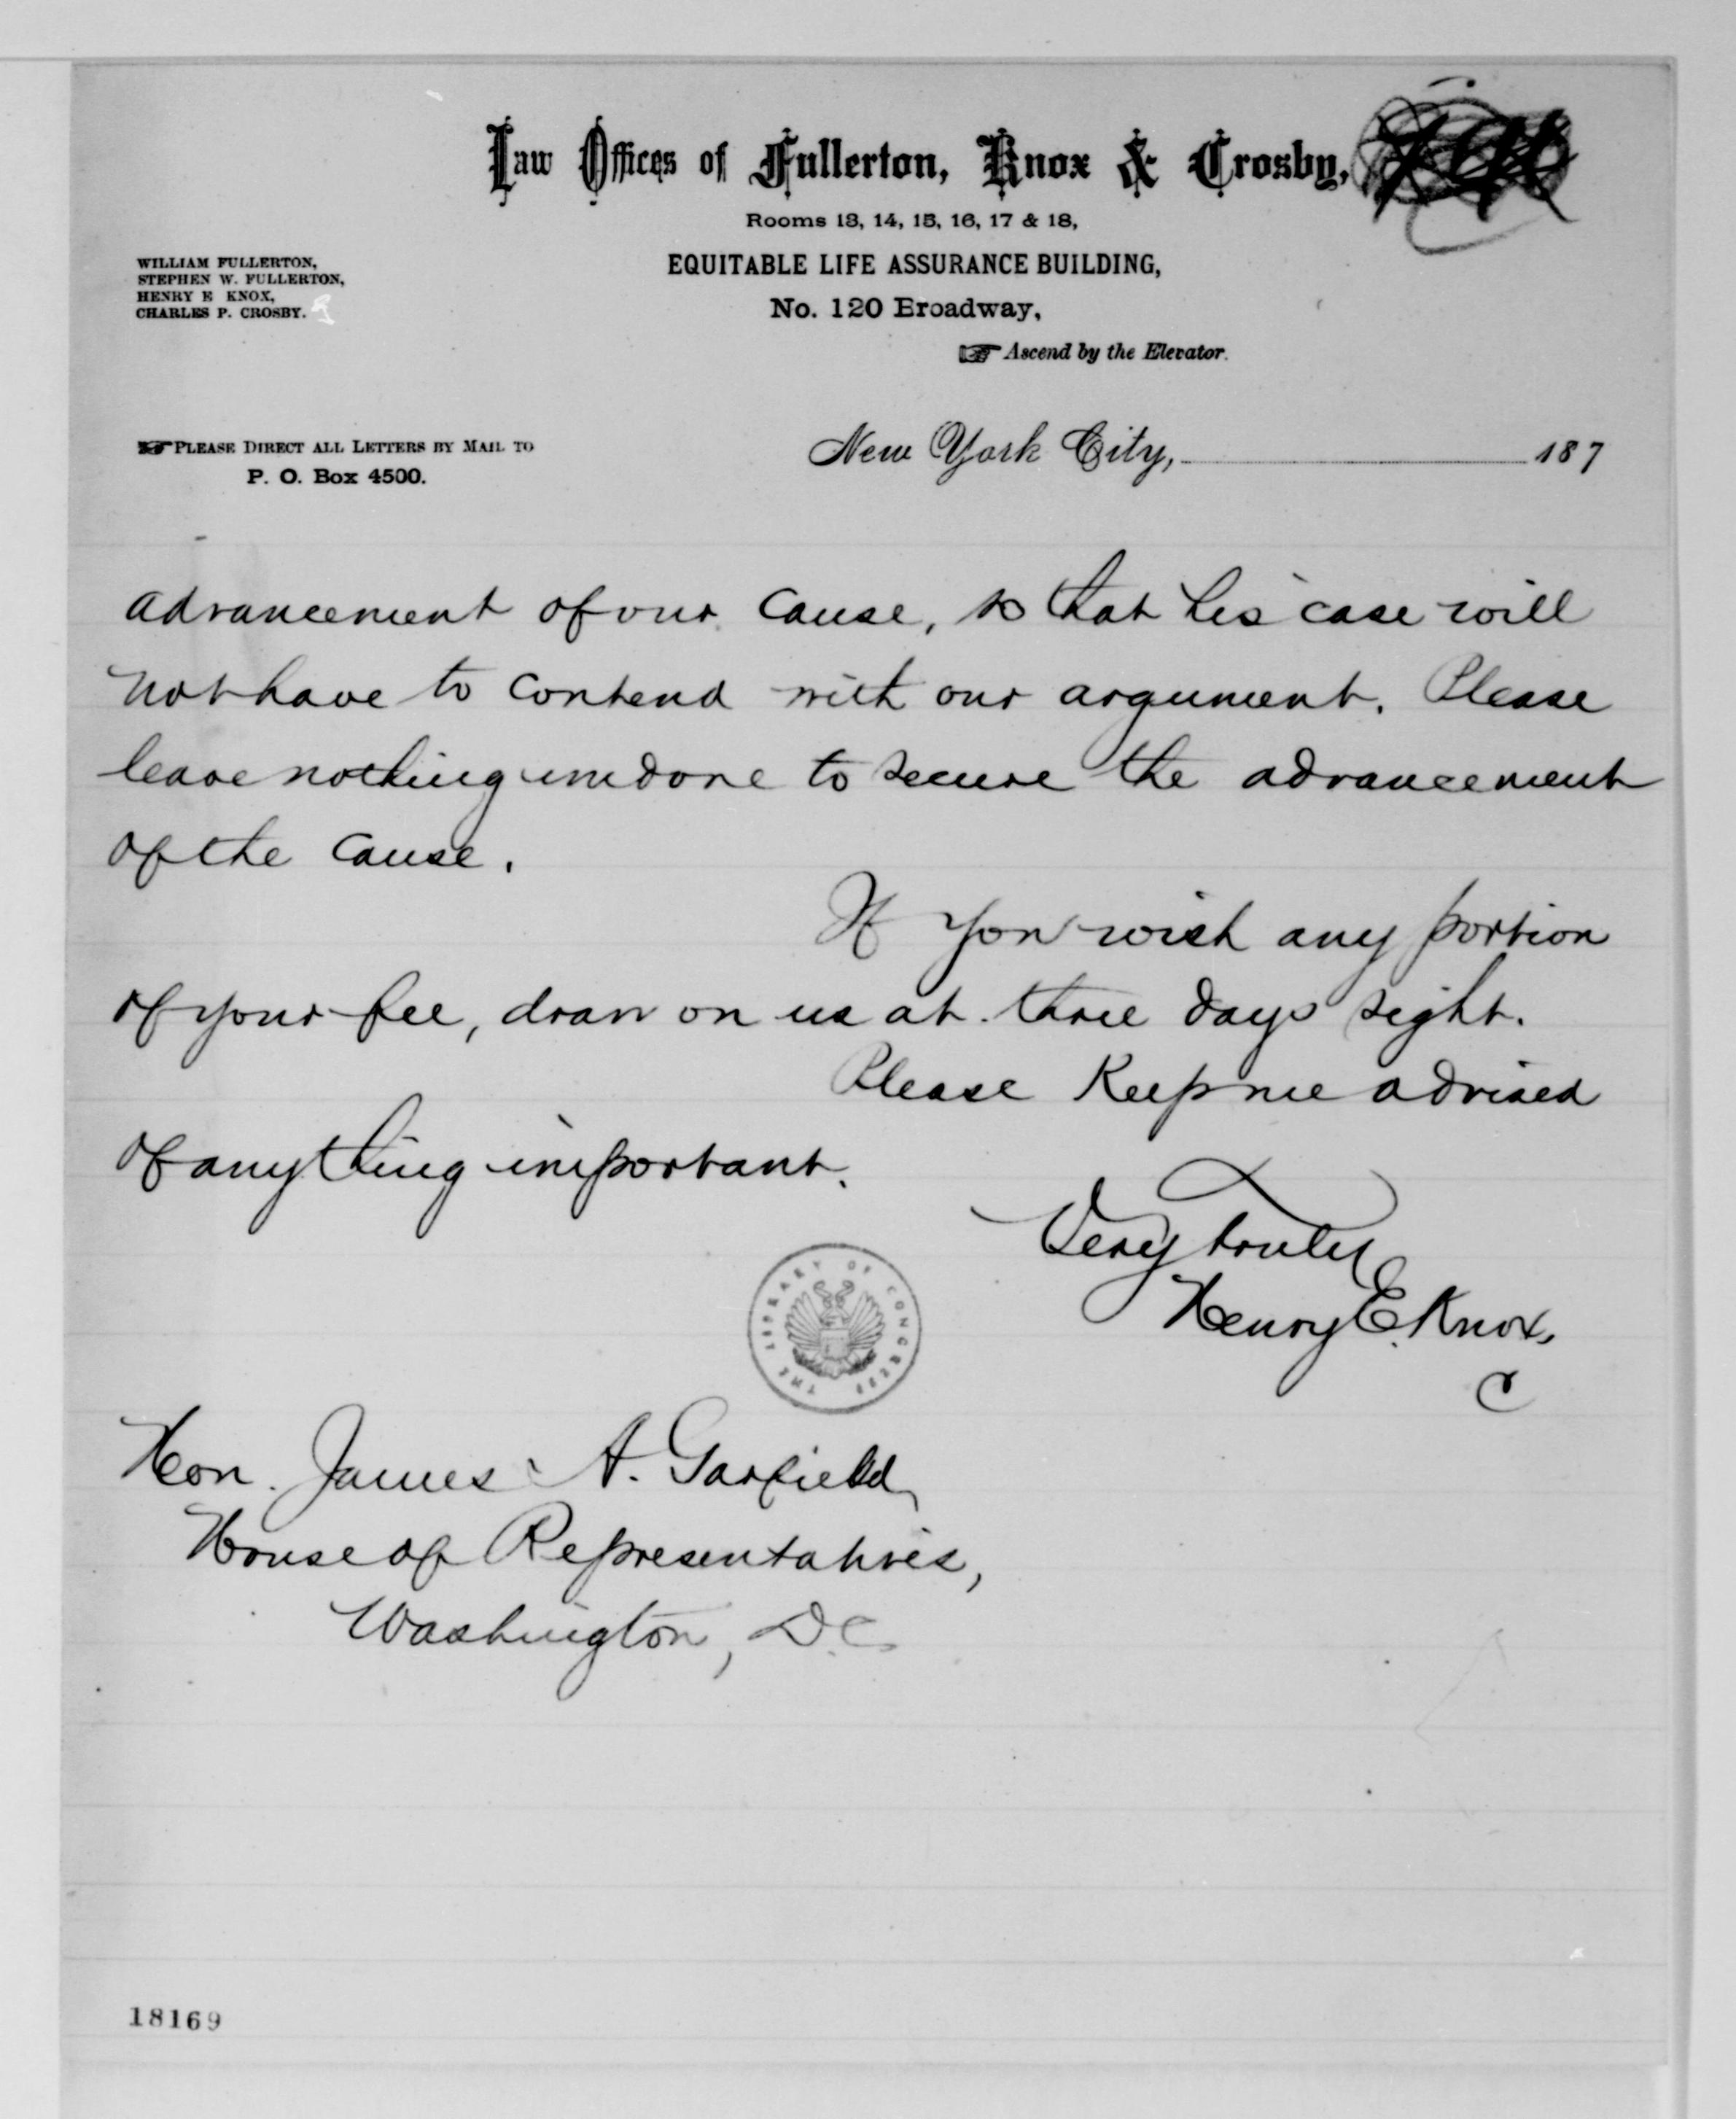 Law Offices of Fullerton, Knox & Crosby,
Rooms 13, 14, 15, 16, 17 & 18,
EQUITABLE LIFE ASSURANCE BUILDING,
No. 120 Broadway,
☞ Ascend by the Elevator.
WILLIAM FULLERTON,
STEPHEN W. FULLERTON,
HENRY E KNOX,
CHARLES P. CROSBY.
☞ PLEASE DIRECT ALL LETTERS BY MAIL TO
P. O. Box 4500.
New York City, 187
advancement of our cause, so that his case will
not have to contend with our argument. Please
leave nothing undone to secure the advancement
of the cause.
If you wish any portion
of your fee, draw on us at three days sight.
Please Keep me advised
of anything important.
Very truly
Henry E. Knox,
C
THE LIBRARY OF CONGRESS
Hon. James A. Garfield,
House of Representatives,
Washington, D.C.
18169